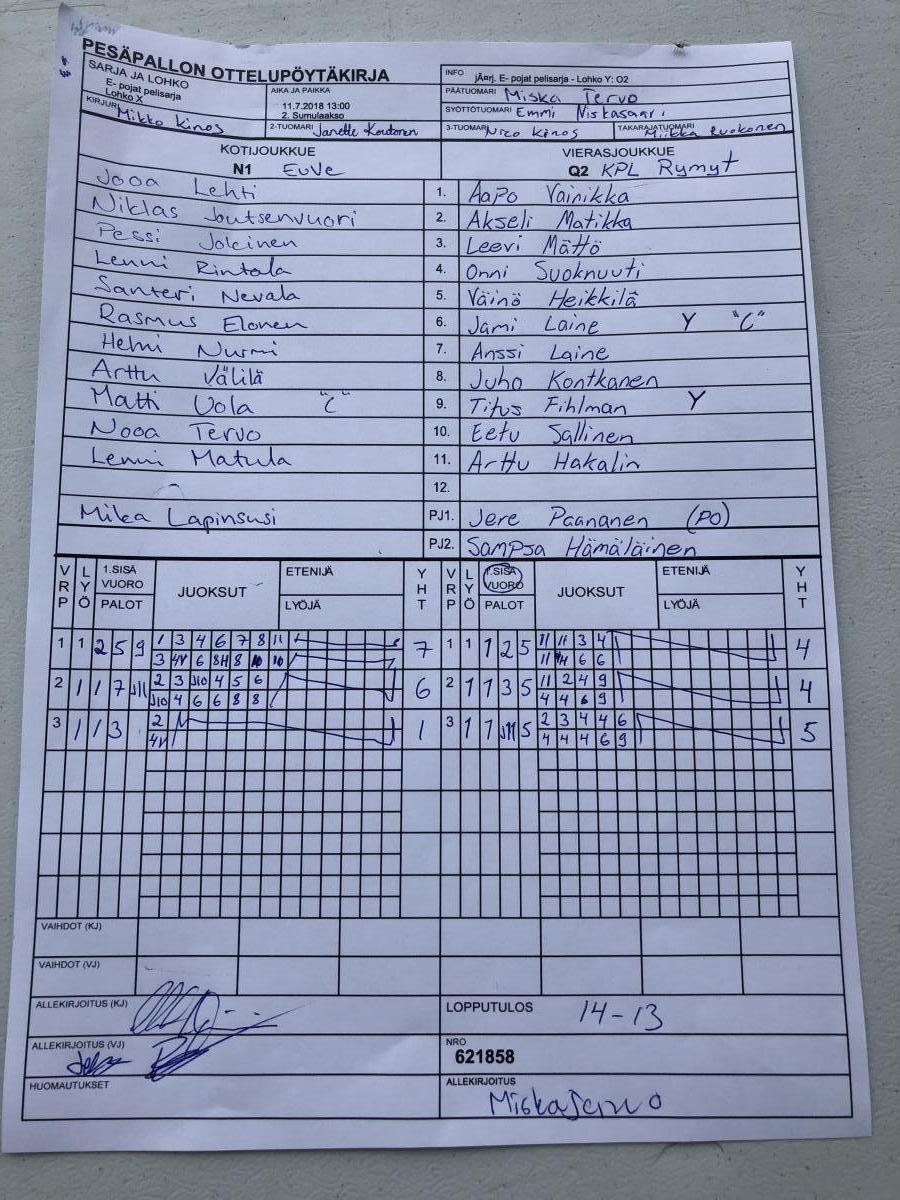 PESÄPALLON OTTELUPÖYTÄKIRJA
SARJA JA LOHKO
E- pojat pelisarja
Lohko X
KIRJURI Mikko Kinos
AIKA JA PAIKKA
11.7.2018 13:00
2. Sumulaakso
2-TUOMARI Janette
INFO
jÄ¤rj. E- pojat pelisarja - Lohko Y: O2
PÄÄTUOMARI Miska Tervo
SYÖTTÖTUOMARI Emmi Niskasaari
3-TUOMARI Kinos TAKARAJATUOMARI Miikka Ruokonen
KOTIJOUKKUE VIERASJOUKKUE
N1 EuVe Q2 KPL Rymyt
Jooa Lehti 1. Aapo Vainikka
Niklas Joutsenvuori 2. Akseli Matikka
Pessi Jokinen 3. Leevi Mättö
Lenni Rintala 4. Onni Suoknuuti
Santeri Nevala 5. Väinö Heikkilä
Rasmus Elonen 6. Jami Laine Y "C"
Helmi Nurmi 7. Anssi Laine
Arttu Välilä 8. Juho Kontkanen
Matti Uola "C" 9. Titus Fihlman Y
Nooa Tervo 10. Eetu Sallinen
Lenni Matula 11. Arttu Hakalin
12.
Mika Lapinsusi PJ1. Jere Paananen (PO)
PJ2. Sampsa Hämäläinen
VRP LYÖ 1.SISÄ VUORO PALOT JUOKSUT ETENIJÄ LYÖJÄ YHT VRP LYÖ 1.SISÄ VUORO PALOT JUOKSUT ETENIJÄ LYÖJÄ YHT
1 1 2 5 9 1 3 4 6 7 8 11 7 1 1 1 2 5 11 11 3 4 4
3 4V 6 8H 8 10 10 11 6 6
2 1 1 7 J11 2 3 J10 4 5 6 6 2 1 1 3 5 11 2 4 9 4
J10 4 6 6 8 8 4 4 6 9
3 1 1 3 2 1 3 1 1 5 2 3 4 4 6 5
4V 4 4 4 6 9
VAIHDOT (KJ)
VAIHDOT (VJ)
ALLEKIRJOITUS (KJ) LOPPUTULOS 14-13
ALLEKIRJOITUS (VJ) NRO
621858
HUOMAUTUKSET ALLEKIRJOITUS
Miska Tervo